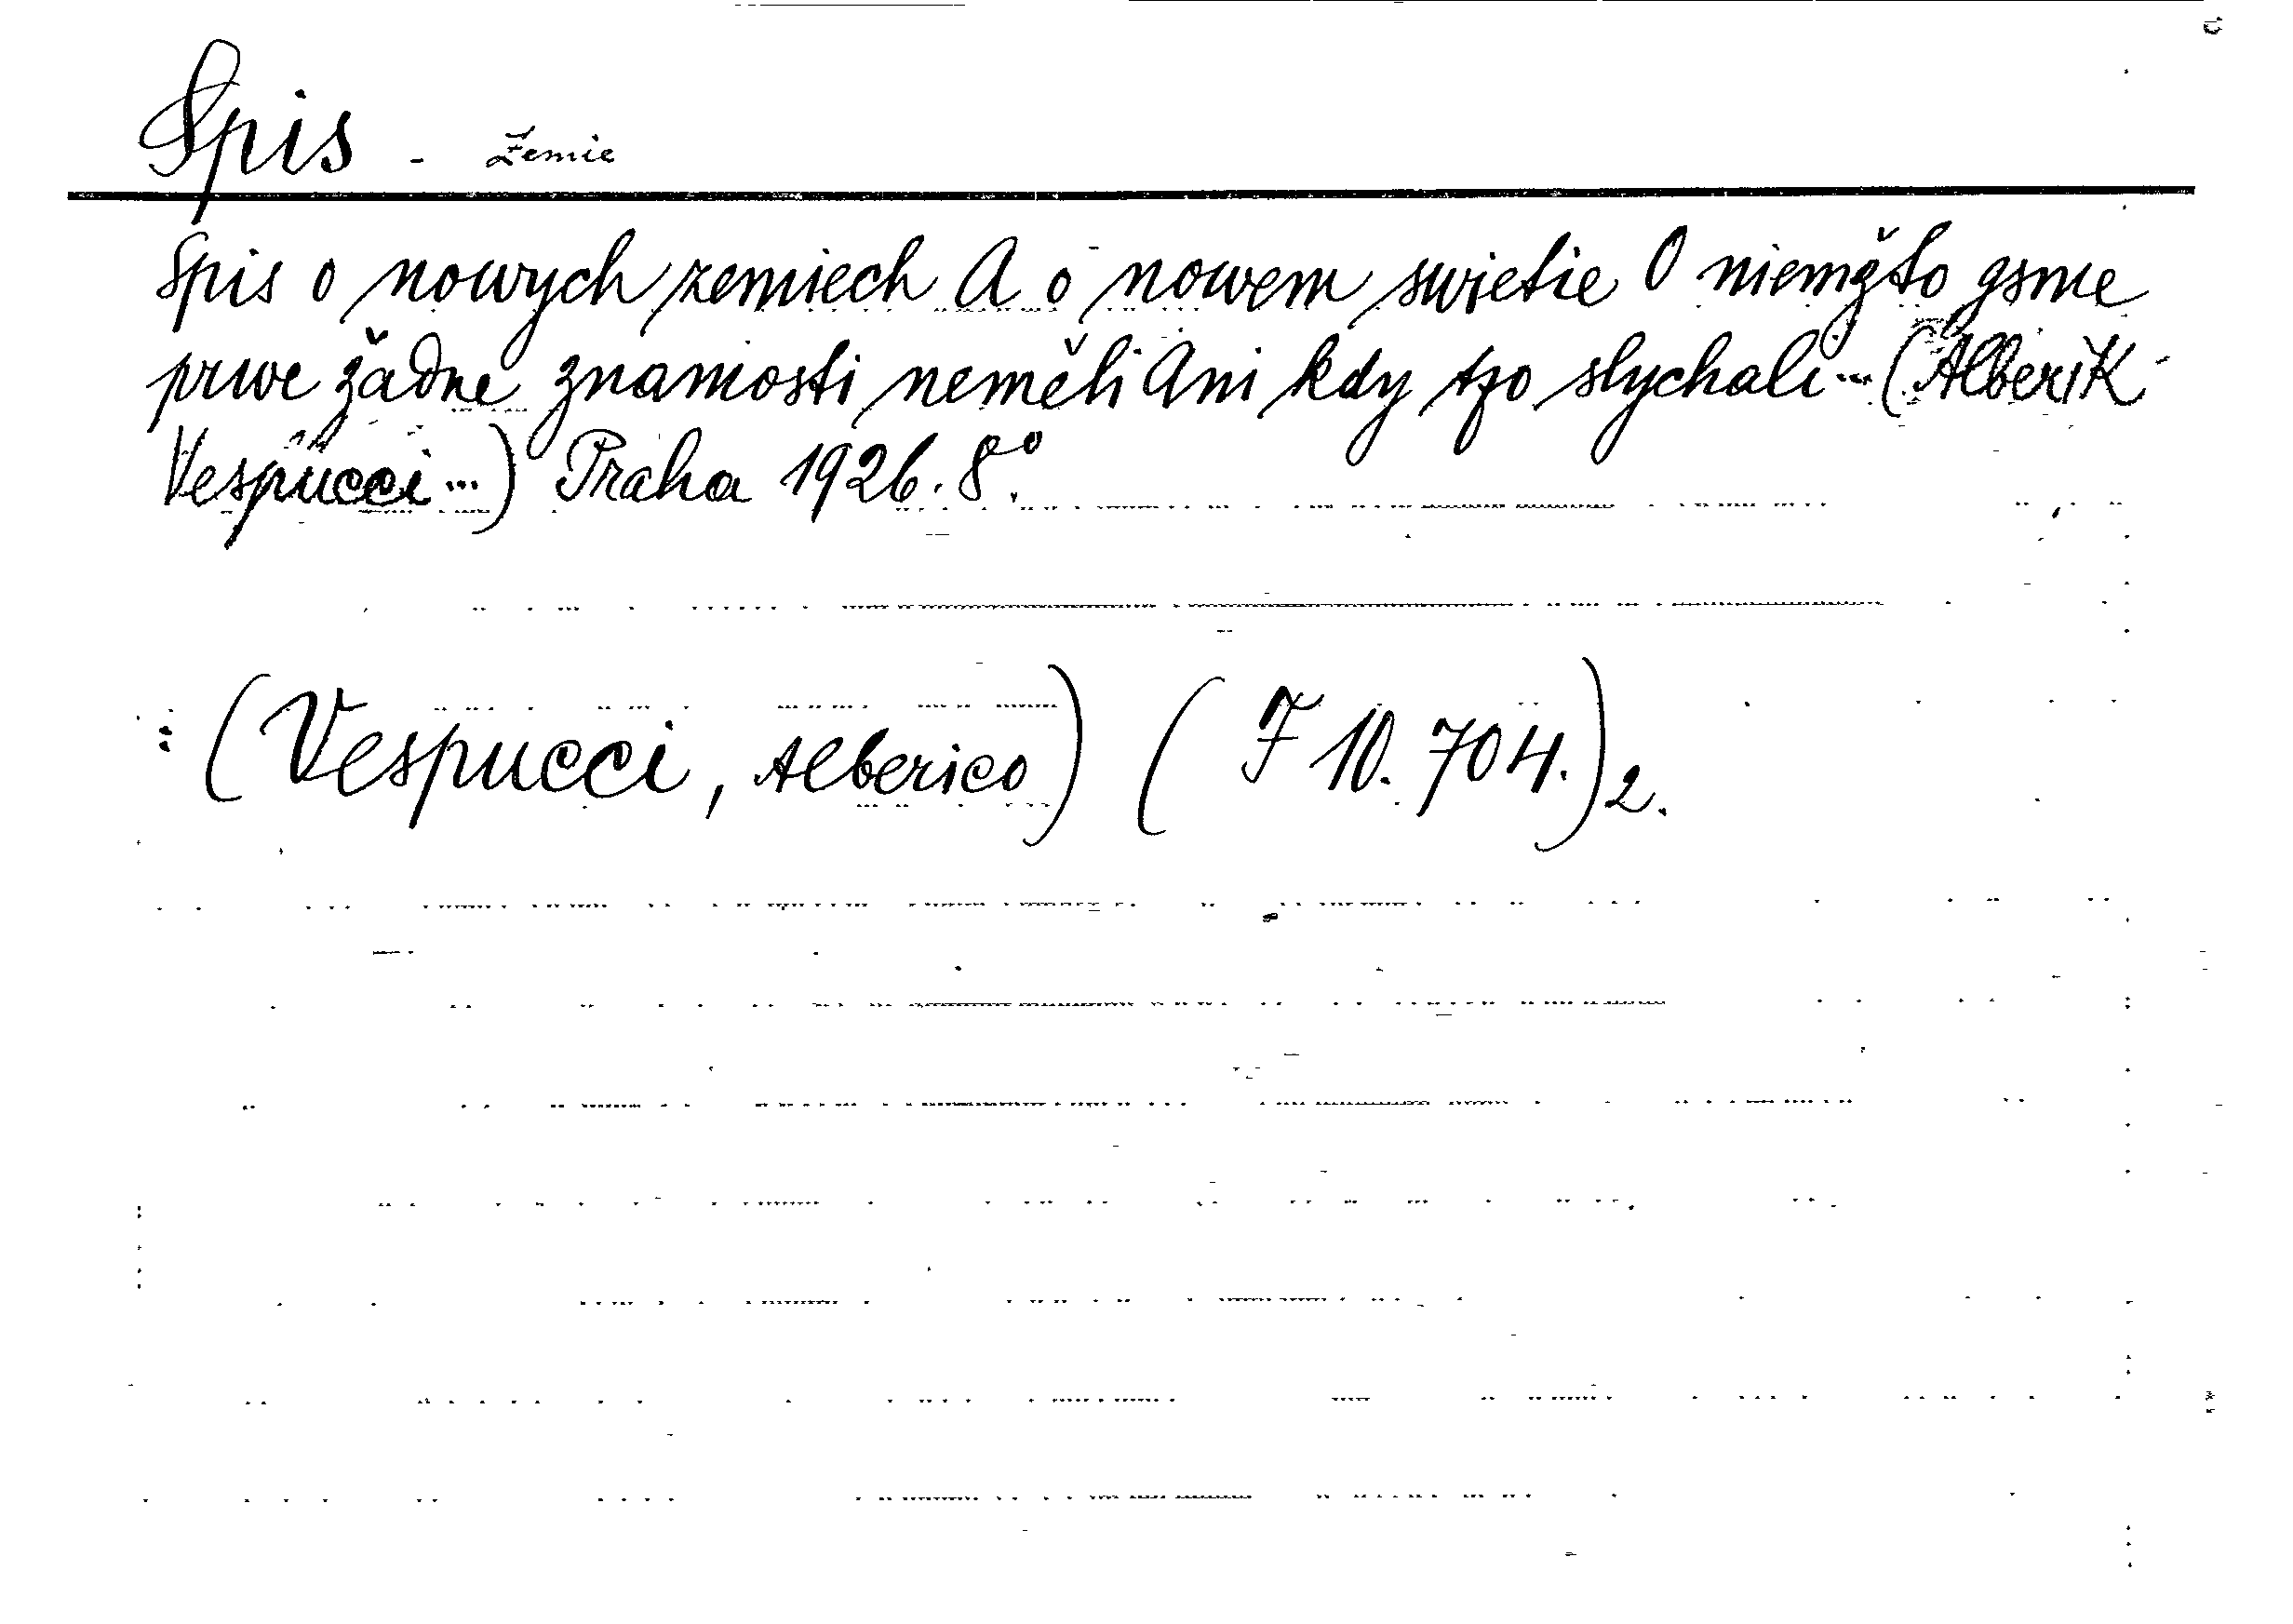 Spis - Zemie
Spis o nowych zemiech A o nowem swietie O niemžto gsme
prwe žadne znamosti neměli Ani kdy tzo slychali... (Alberik
Vespucci...) Praha 1926. 8°.
: (Vespucci, Alberico) (F 10. 704.) 2.